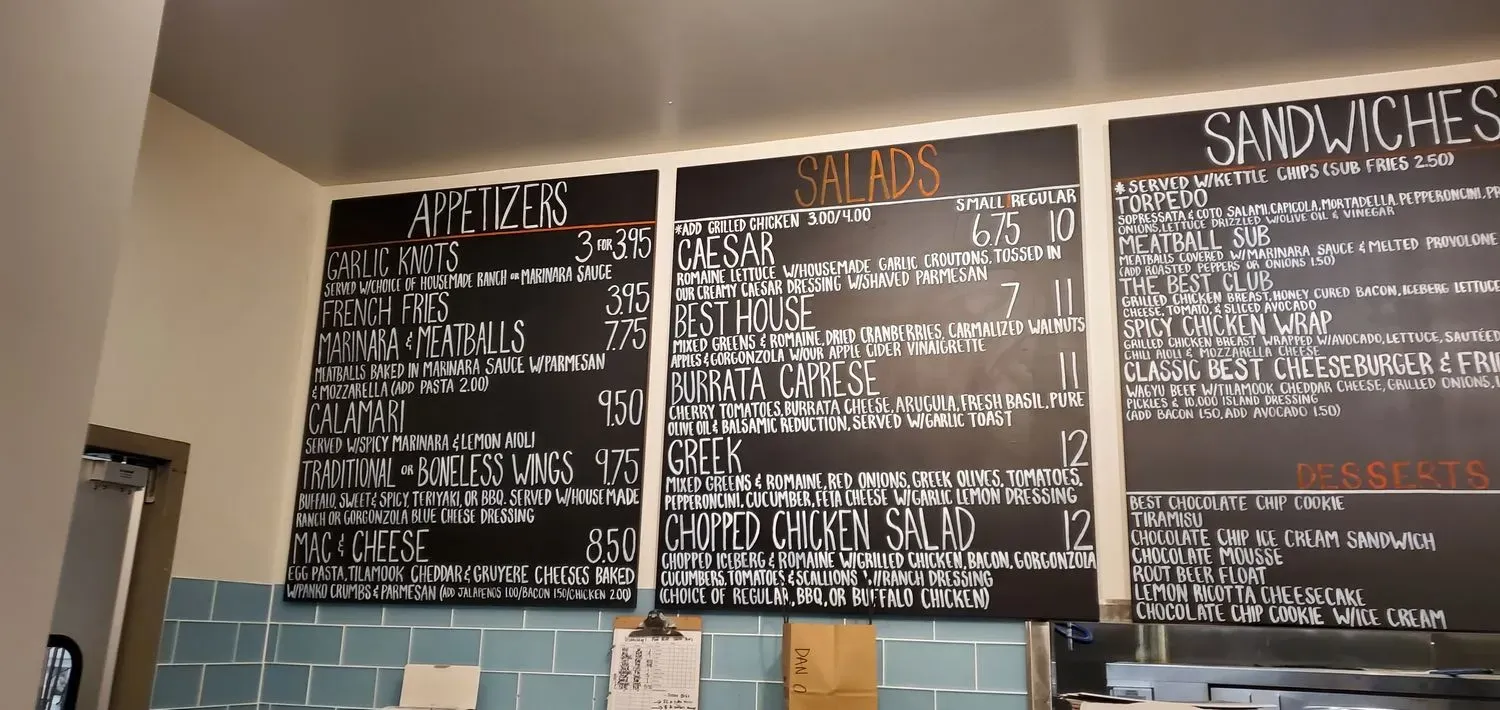 APPETIZERS
GARLIC KNOTS 3 FOR 3.95
SERVED W/CHOICE OF HOUSEMADE RANCH OR MARINARA SAUCE
FRENCH FRIES 3.95
MARINARA & MEATBALLS 7.75
MEATBALLS BAKED IN MARINARA SAUCE W/PARMESAN
& MOZZARELLA (ADD PASTA 2.00)
CALAMARI 9.50
SERVED W/SPICY MARINARA & LEMON AIOLI
TRADITIONAL OR BONELESS WINGS 9.75
BUFFALO, SWEET & SPICY, TERIYAKI, OR BBQ. SERVED W/HOUSEMADE
RANCH OR GORGONZOLA BLUE CHEESE DRESSING
MAC & CHEESE 8.50
EGG PASTA, TILAMOOK CHEDDAR & GRUYERE CHEESES BAKED
W/PANKO CRUMBS & PARMESAN (ADD JALAPENOS 1.00/BACON 1.50/CHICKEN 2.00)
SALADS
SMALL REGULAR
*ADD GRILLED CHICKEN 3.00/4.00
CAESAR 6.75 10
ROMAINE LETTUCE W/HOUSEMADE GARLIC CROUTONS. TOSSED IN
OUR CREAMY CAESAR DRESSING W/SHAVED PARMESAN
BEST HOUSE 7 11
MIXED GREENS & ROMAINE, DRIED CRANBERRIES, CARMALIZED WALNUTS
APPLES & GORGONZOLA W/OUR APPLE CIDER VINAIGRETTE
BURRATA CAPRESE 11
CHERRY TOMATOES, BURRATA CHEESE, ARUGULA, FRESH BASIL, PURE
OLIVE OIL & BALSAMIC REDUCTION, SERVED W/GARLIC TOAST
GREEK 12
MIXED GREENS & ROMAINE, RED ONIONS, GREEK OLIVES, TOMATOES,
PEPPERONCINI, CUCUMBER, FETA CHEESE W/GARLIC LEMON DRESSING
CHOPPED CHICKEN SALAD 12
CHOPPED ICEBERG & ROMAINE W/GRILLED CHICKEN, BACON, GORGONZOLA
CUCUMBERS, TOMATOES & SCALLIONS W/RANCH DRESSING
(CHOICE OF REGULAR, BBQ, OR BUFFALO CHICKEN)
SANDWICHES
*SERVED W/KETTLE CHIPS (SUB FRIES 2.50)
TORPEDO
SOPRESSATA & COTO SALAMI, CAPICOLA, MORTADELLA, PEPPERONCINI, PR
ONIONS, LETTUCE DRIZZLED W/OLIVE OIL & VINEGAR
MEATBALL SUB
MEATBALLS COVERED W/MARINARA SAUCE & MELTED PROVOLONE
(ADD ROASTED PEPPERS OR ONIONS 1.50)
THE BEST CLUB
GRILLED CHICKEN BREAST, HONEY CURED BACON, ICEBERG LETTUCE
CHEESE, TOMATO, & SLICED AVOCADO
SPICY CHICKEN WRAP
GRILLED CHICKEN BREAST WRAPPED W/AVOCADO, LETTUCE, SAUTÉED
CHILI AIOLI & MOZZARELLA CHEESE
CLASSIC BEST CHEESEBURGER & FRI
WAGYU BEEF W/TILAMOOK CHEDDAR CHEESE, GRILLED ONIONS, L
PICKLES & 10,000 ISLAND DRESSING
(ADD BACON 1.50, ADD AVOCADO 1.50)
DESSERTS
BEST CHOCOLATE CHIP COOKIE
TIRAMISU
CHOCOLATE CHIP ICE CREAM SANDWICH
CHOCOLATE MOUSSE
ROOT BEER FLOAT
LEMON RICOTTA CHEESECAKE
CHOCOLATE CHIP COOKIE W/ICE CREAM
DAN O